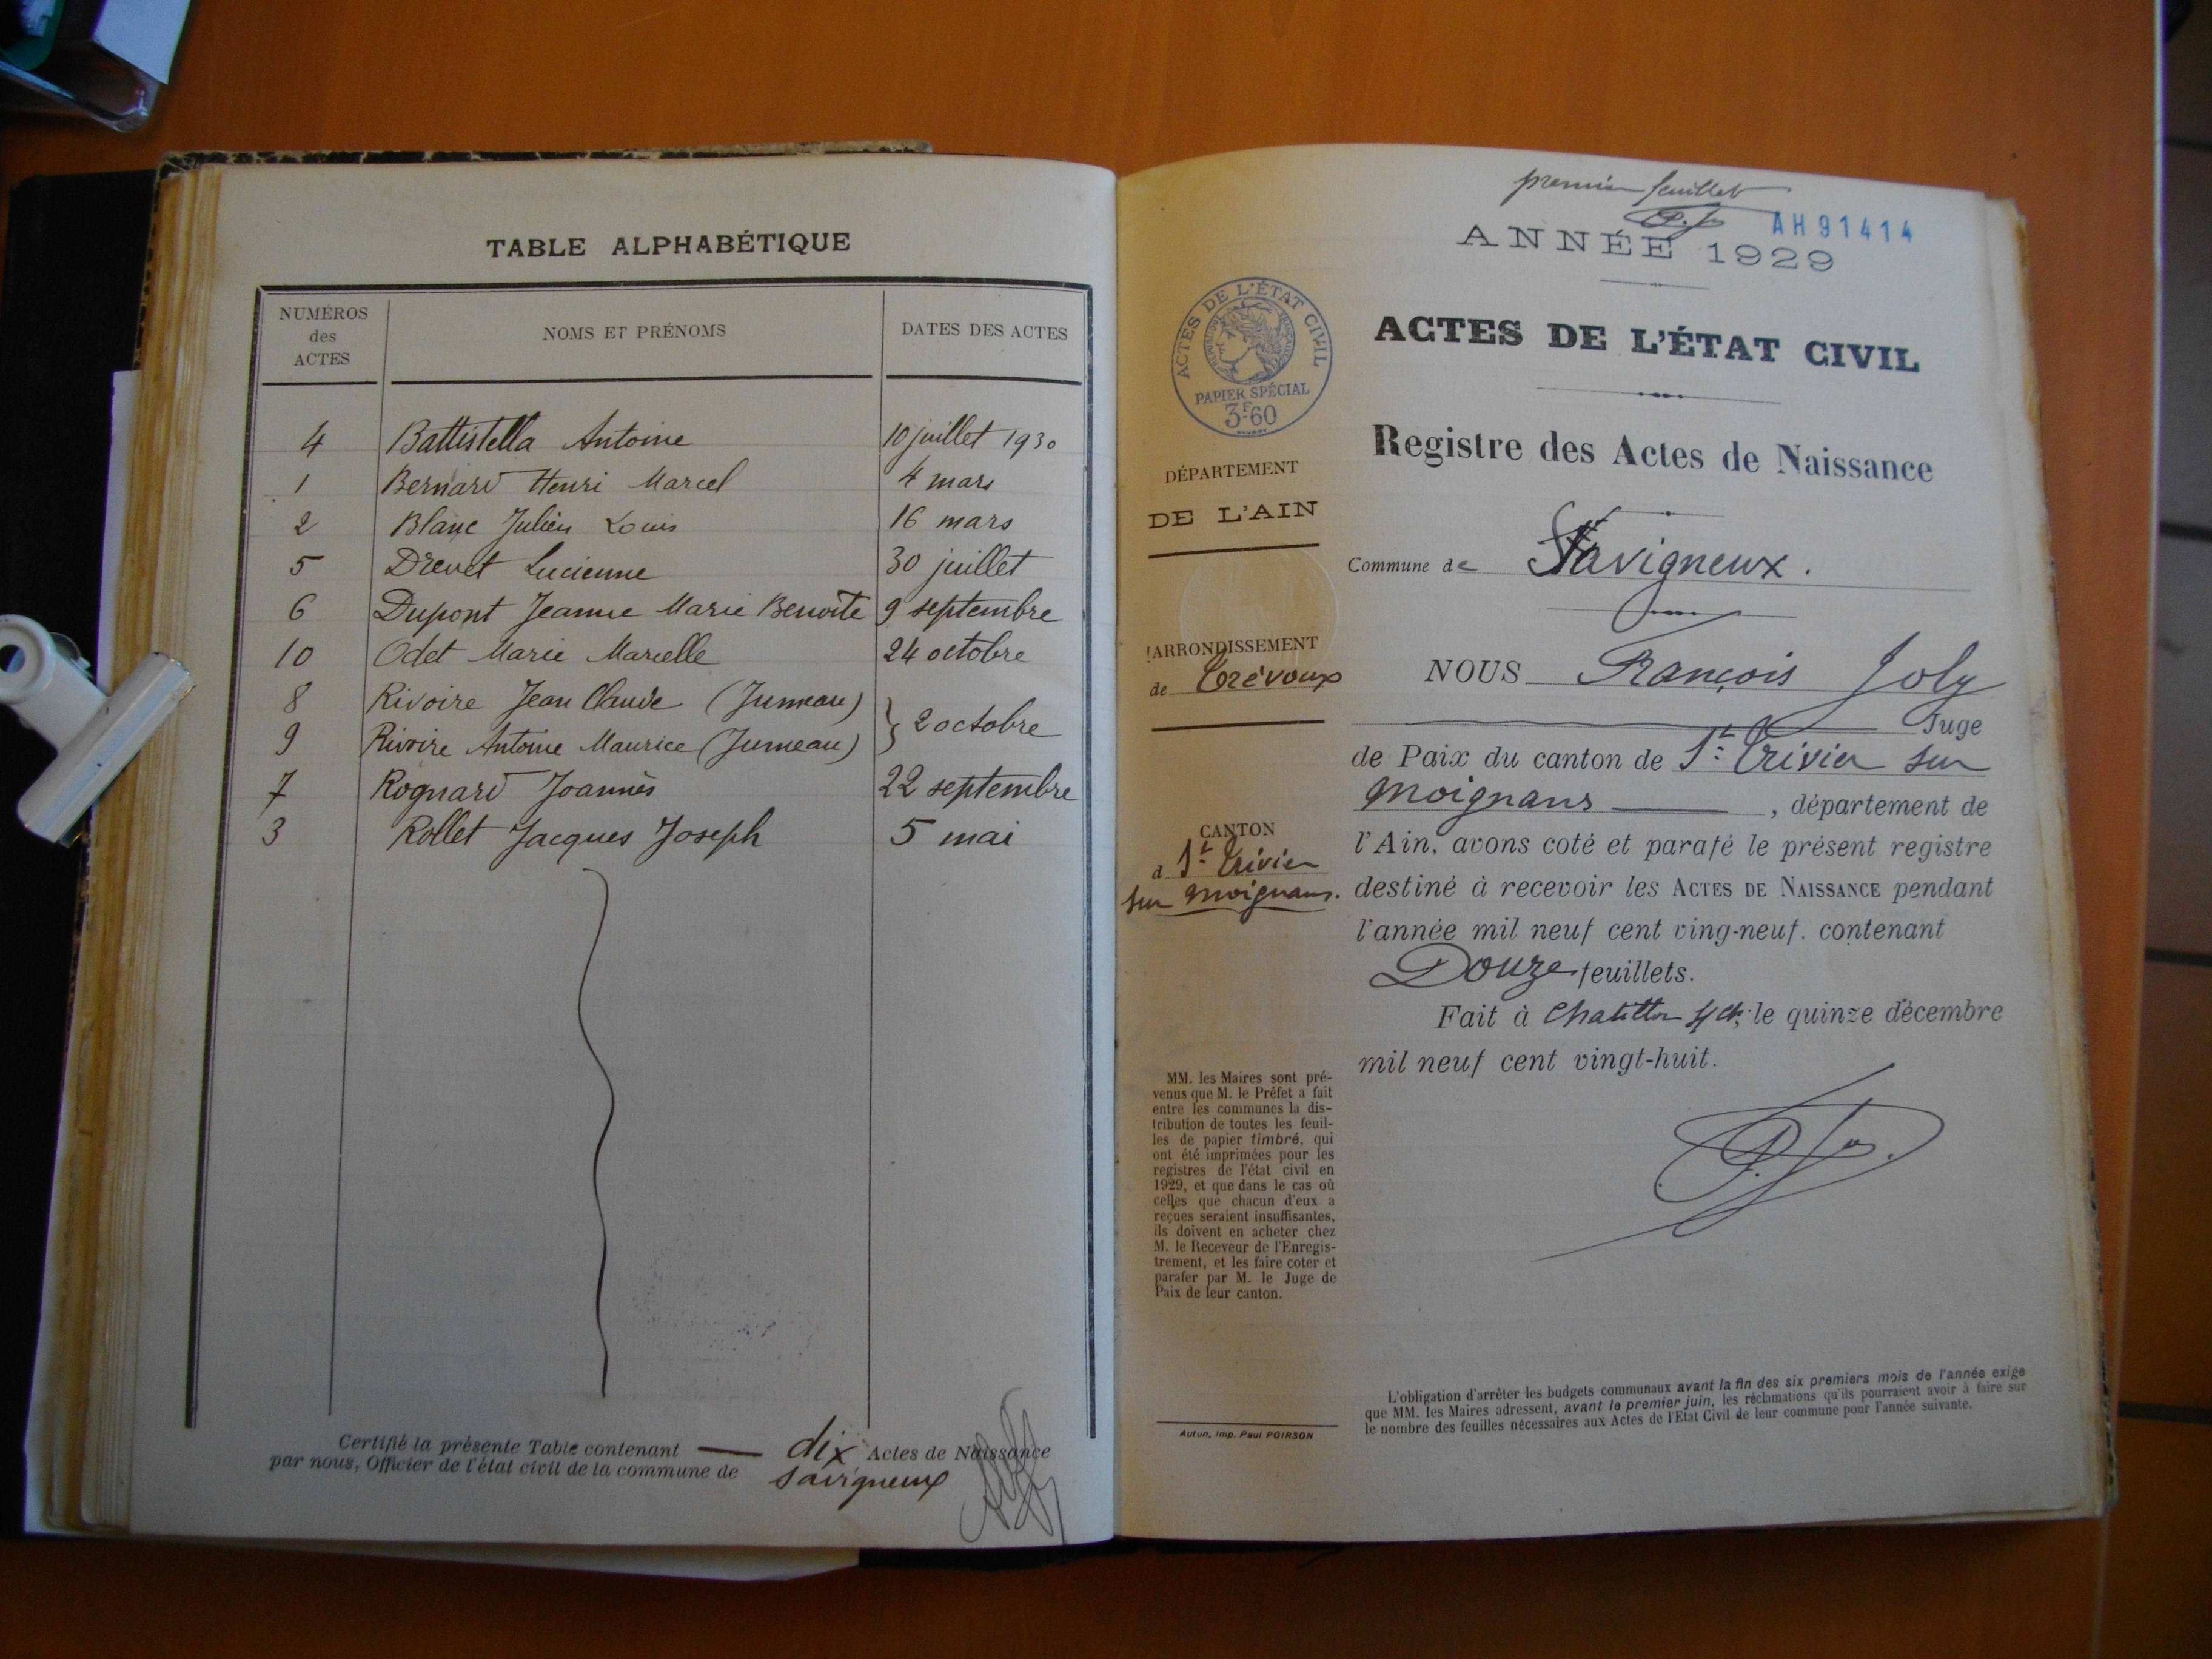 TABLE ALPHABÉTIQUE
NUMÉROS des ACTES
NOMS ET PRÉNOMS
DATES DES ACTES
4 Battistella Antoine 10 juillet 1930
1 Bernard Henri Marcel 4 mars
2 Blanc Julien Louis 16 mars
5 Drevet Lucienne 30 juillet
6 Dupont Jeanne Marie Benoîte 9 septembre
10 Odet Marie Marcelle 24 octobre
8 Rivoire Jean Claude (Jumeau)
9 Rivoire Antoine Maurice (Jumeau) } 2 octobre
7 Rognard Joannès 22 septembre
3 Rollet Jacques Joseph 5 mai
Certifié la présente Table contenant — dix Actes de Naissance
par nous, Officier de l'état civil de la commune de Savigneux
premier feuillet
AH91414
ANNÉE 1929
ACTES DE L'ÉTAT CIVIL
PAPIER SPÉCIAL
3F60
ACTES DE L'ÉTAT CIVIL
Registre des Actes de Naissance
DÉPARTEMENT
DE L'AIN
Commune de Savigneux.
ARRONDISSEMENT
de Trévoux
NOUS François Joly
Juge
de Paix du canton de St Trivier sur
Moignans, département de
l'Ain, avons coté et parafé le présent registre
destiné à recevoir les ACTES DE NAISSANCE pendant
l'année mil neuf cent ving-neuf. contenant
Douze feuillets.
Fait à Chatillon s/ch, le quinze décembre
mil neuf cent vingt-huit.
CANTON
d St Trivier
sur Moignans.
MM. les Maires sont pré-
venus que M. le Préfet a fait
entre les communes la dis-
tribution de toutes les feuil-
les de papier timbré, qui
ont été imprimées pour les
registres de l'état civil en
1929, et que dans le cas où
celles que chacun d'eux a
reçues seraient insuffisantes,
ils doivent en acheter chez
M. le Receveur de l'Enregis-
trement, et les faire coter et
parafer par M. le Juge de
Paix de leur canton.
Autun, Imp. Paul POIRSON
L'obligation d'arrêter les budgets communaux avant la fin des six premiers mois de l'année exige
que MM. les Maires adressent, avant le premier juin, les réclamations qu'ils pourraient avoir à faire sur
le nombre des feuilles nécessaires aux Actes de l'Etat Civil de leur commune pour l'année suivante.